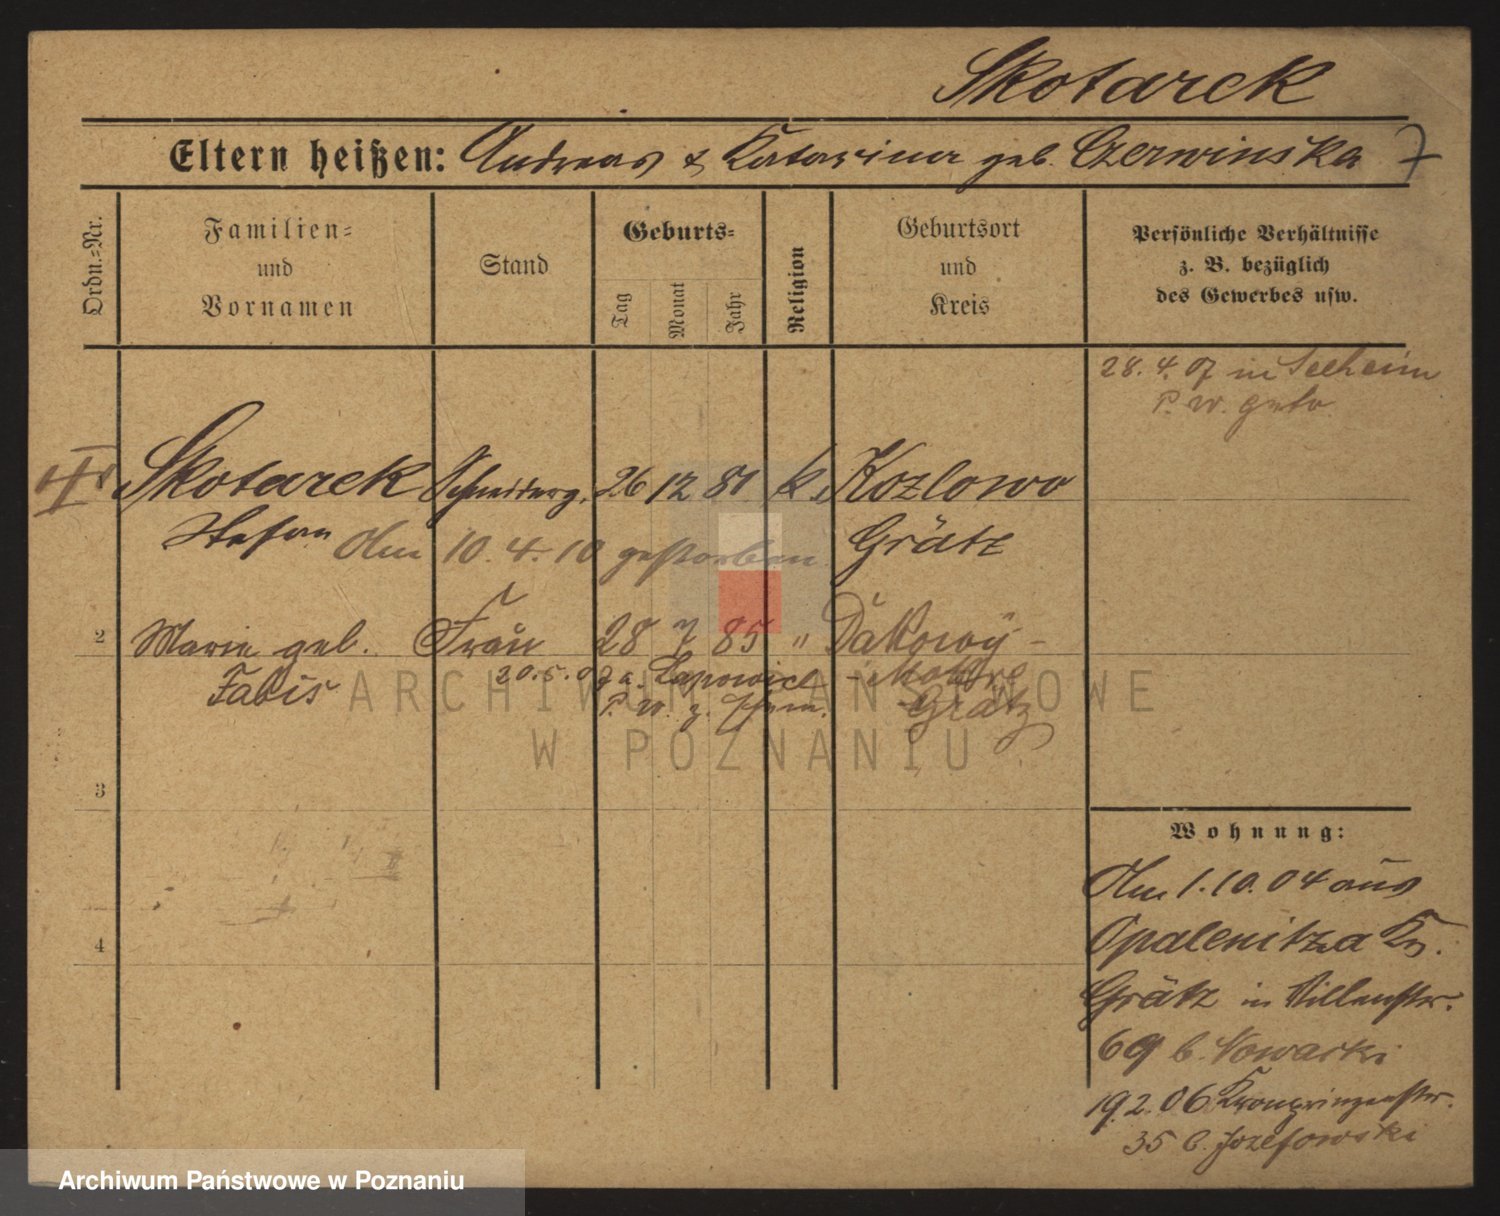 Skotarek
Eltern heißen: Andreas & Katarina geb. Czerwinska 7
Ordn.-Nr.
Familien-
und
Vornamen
Stand
Geburts-
Tag
Monat
Jahr
Religion
Geburtsort
und
Kreis
Persönliche Verhältnisse
z. B. bezüglich
des Gewerbes usw.
28. 4. 07 in Seeheim
P. W. geb
Skotarek Schneiderg. 26 12 81 k. Kozlowo
Stefan Am 10. 4. 10 gestorben Grätz
2 Marie geb. Frau 28 7 85 " Dakowy -
Fabis 20. 5. 07 a. - Mokre
P. W. z. Grätz
3
4
Wohnung:
Am 1. 10. 04 aus
Opalenitza Kr.
Grätz in Villenstr.
69 b. Nowacki
19. 2. 06 Kronprinzenstr.
35 b. Jozefowski
ARCHIWUM PAŃSTWOWE
W POZNANIU
Archiwum Państwowe w Poznaniu